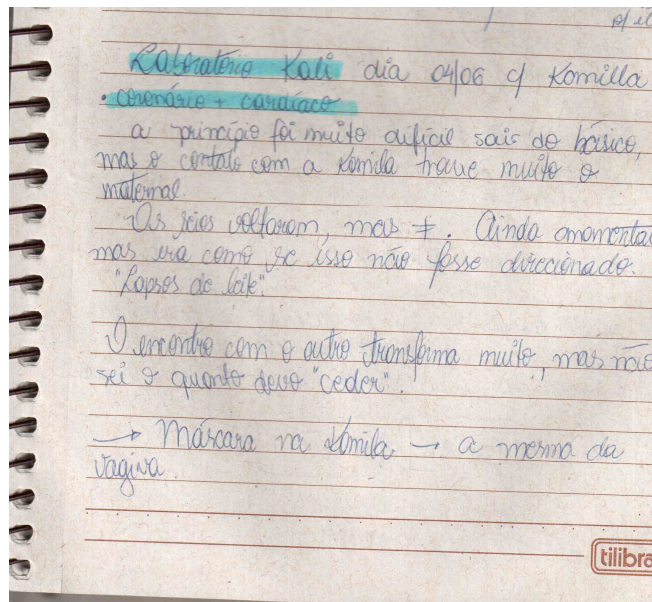 p/ el
Laboratório Kali dia 04/06 c/ Komilla
• coronário + cardíaco
a princípio foi muito difícil sair do básico,
mas o contato com a Komila trouxe muito o
maternal.
Os seios voltaram, mas ≠. Ainda amamentar
mas era como se isso não fosse direcionado.
"Lapsos de leite".
O encontro com o outro transforma muito, mas não
sei o quanto devo "ceder".
→ Máscara na Komila → a mesma da
vagina.
tilibra